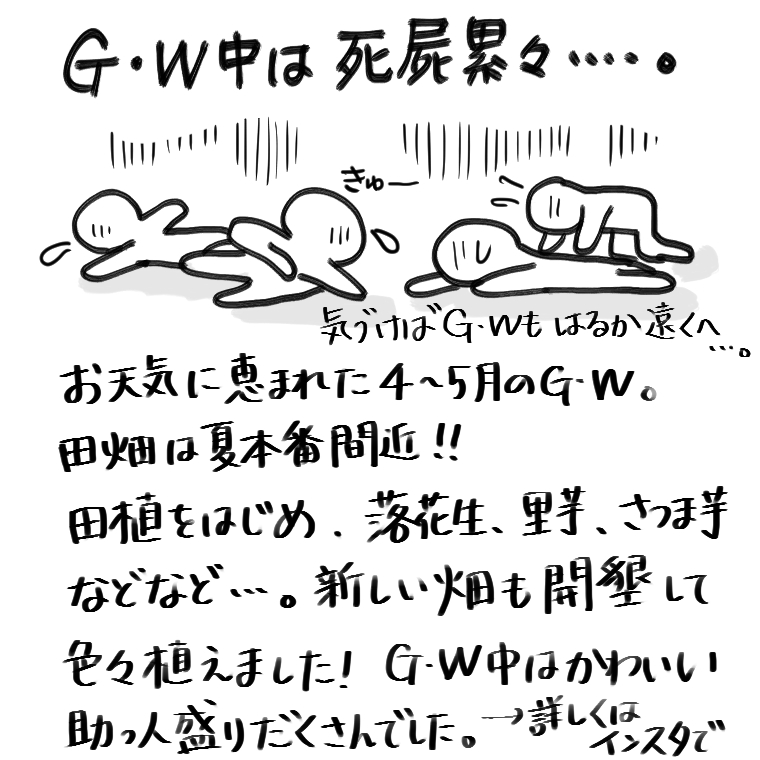 G・W中は死屍累々・・・・・。
きゅー
気づけばG・Wもはるか遠くへ
・・・。
お天気に恵まれた4～5月のG・W。
田畑は夏本番間近!!
田植をはじめ、落花生、里芋、さつま芋
などなど・・・。新しい畑も開墾して
色々植えました! G・W中はかわいい
助っ人盛りだくさんでした。→詳しくは
インスタで